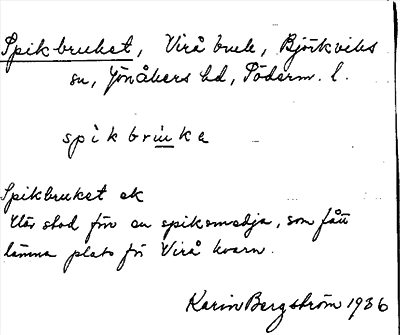 Spikbruket, Virå bruk, Björkviks
sn, Jönåkers hd, Söderm. l.
spikbruke
Spikbruket ek
Här stod förr en spiksmedja, som fått
lämna plats för Virå kvarn.
Karin Bergström 1936